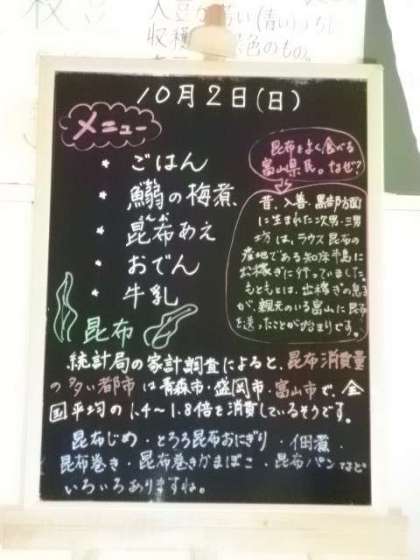 枝豆
大豆が若い(青い)うちに
収穫
色のもの。
10月2日(日)
メニュー
* ごはん
* 鰯の梅煮
* 昆布あえ
こぶ
* おでん
* 牛乳
昆布をよく食べる
富山県民。なぜ?
昔、入善、黒部方面
に生まれた次男・三男
坊は、ラウス昆布の
産地である知床半島に
出稼ぎに行っていました。
もともとは、出稼ぎの息子
が、親元のいる富山に昆布
を送ったことが始まりです。
昆布
統計局の家計調査によると、昆布消費量
の多い都市は青森市・盛岡市・富山市で、全
国平均の1.4～1.8倍を消費しているそうです。
昆布じめ・とろろ昆布おにぎり・佃煮・
昆布巻き・昆布巻きかまぼこ・昆布パンなど
いろいろありますね。